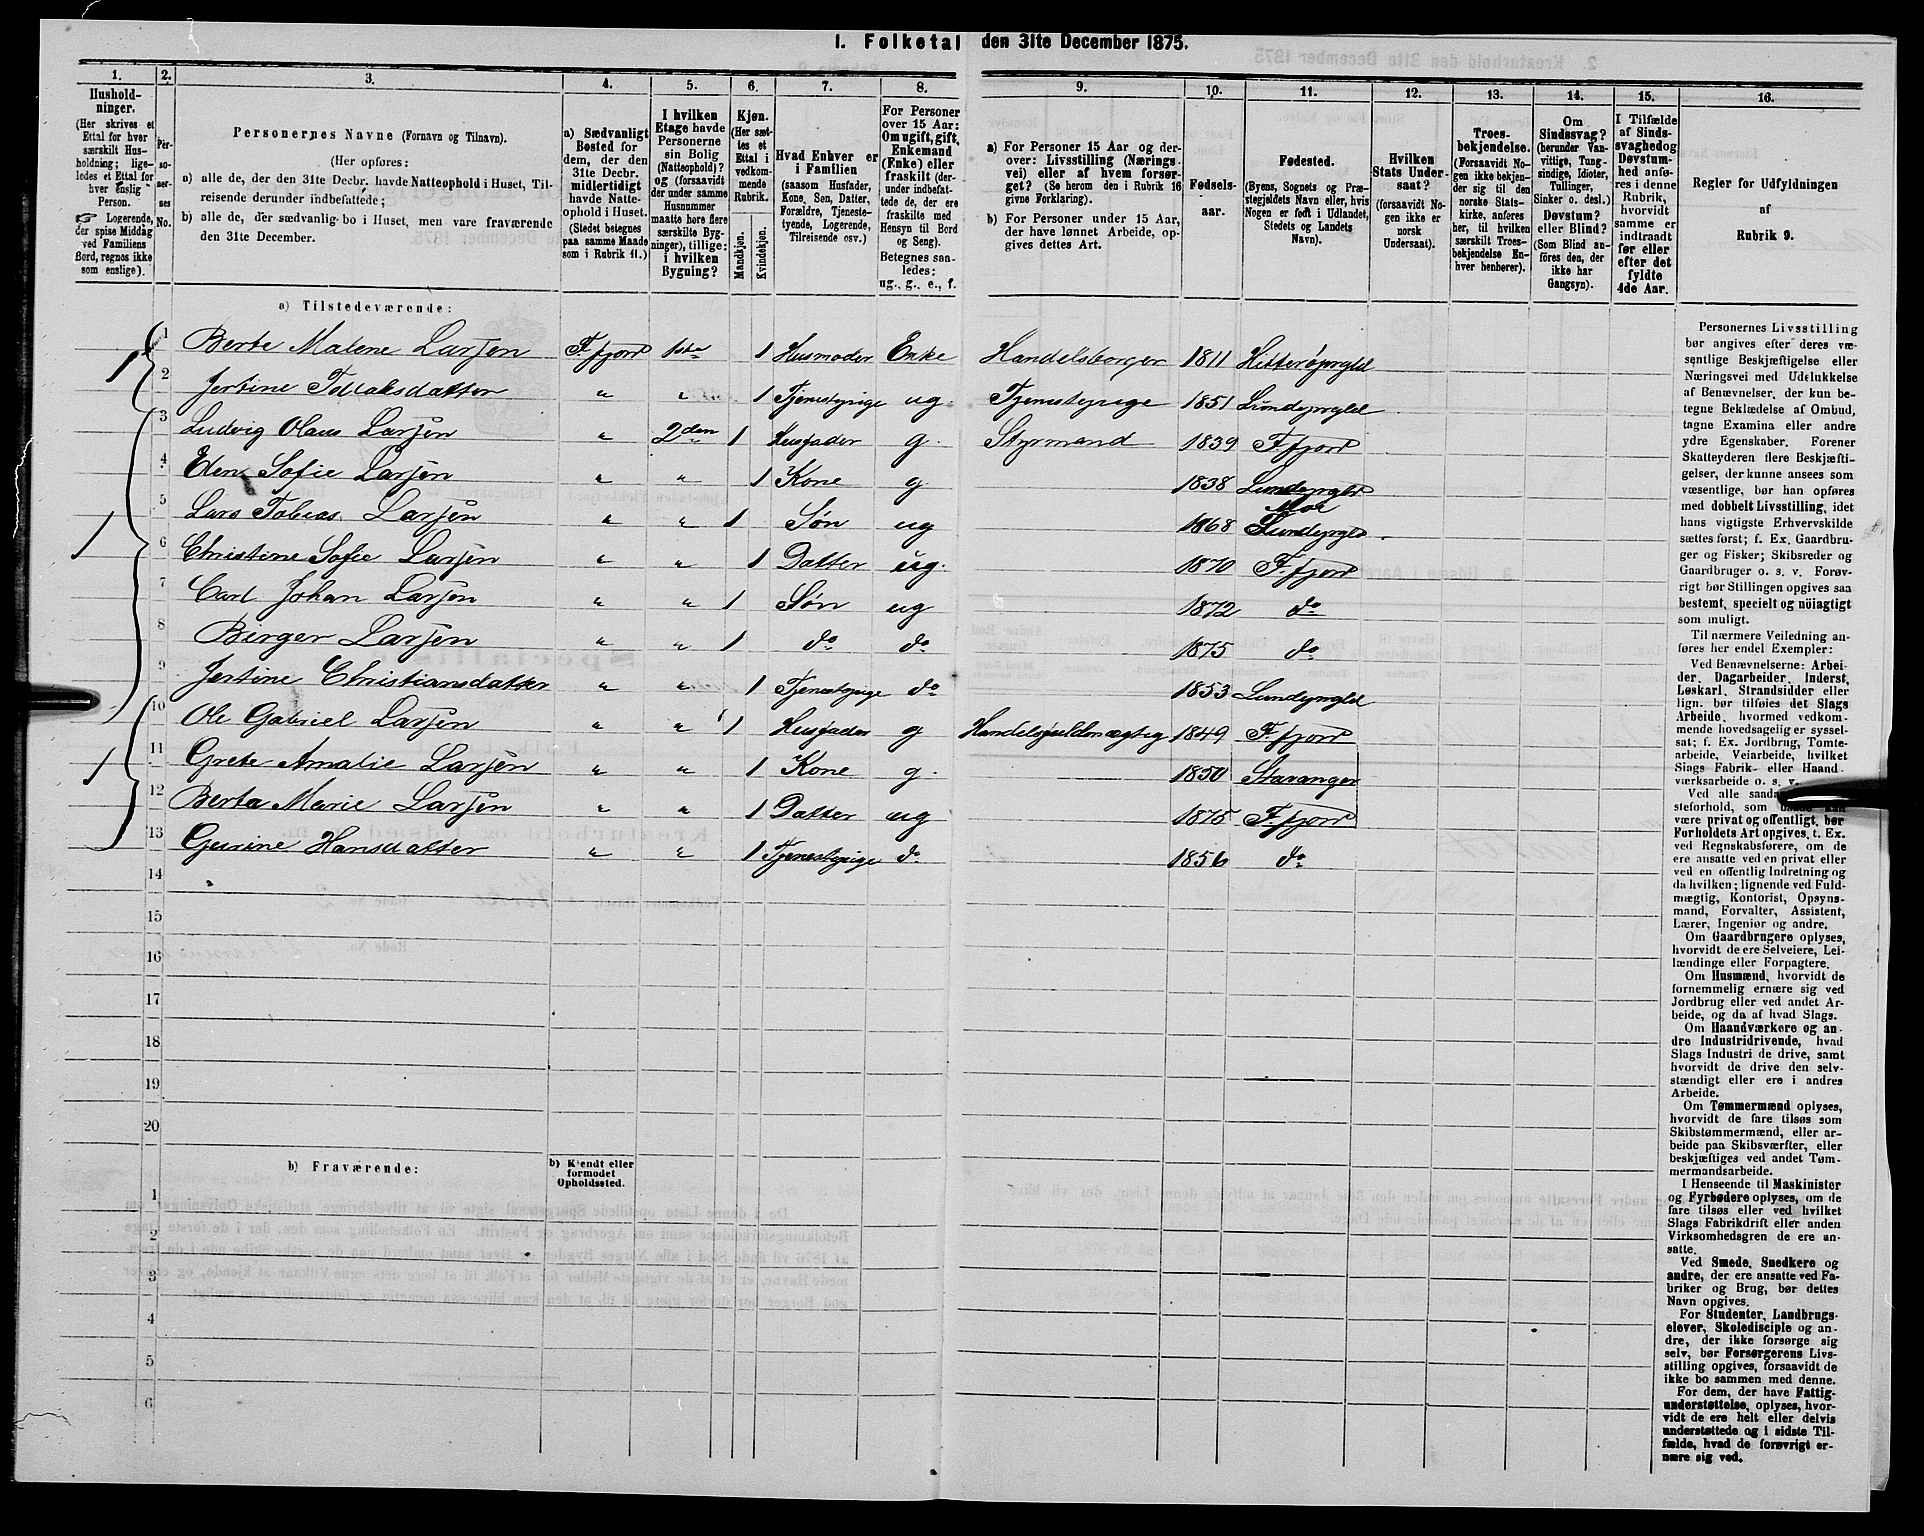 1. Folketal den 31te December 1875.
1. 2. 3. 4. 5. 6. 7. 8. 9. 10. 11. 12. 13. 14. 15. 16.
Hushold-
ninger.
(Her skrives et
Ettal for hver
særskilt Hus-
holdning; lige-
ledes et Ettal for
hver enslig
Person.
☞ Logerende,
der spise Middag
ved Familiens
Bord, regnes ikke
som enslige).
Per-
so-
ner-
nes
No.
Personernes Navne (Fornavn og Tilnavn).
(Her opføres:
a) alle de, der den 31te Decbr. havde Natteophold i Huset, Til-
reisende derunder indbefattede;
b) alle de, der sædvanlig bo i Huset, men vare fraværende
den 31te December.
a) Sædvanligt
Bosted for
dem, der den
31te Decbr.
midlertidigt
havde Natte-
ophold i Huset.
(Stedet betegnes
paa samme Maade
som i Rubrik 11.)
I hvilken
Etage havde
Personerne
sin Bolig
(Natteophold)?
og (forsaavidt
der under samme
Husnummer
maatte høre flere
særskilte Byg-
ninger), tillige:
i hvilken
Bygning?
Kjøn.
(Her sæt-
tes et
Ettal i
vedkom-
mende
Rubrik.
Mandkjøn.
Kvindekjøn.
Hvad Enhver er
i Familien
(saasom Husfader,
Kone, Søn, Datter,
Forældre, Tjeneste-
tyende, Logerende,
Tilreisende osv.)
For Personer
over 15 Aar:
Om ugift, gift,
Enkemand
(Enke) eller
fraskilt (der-
under indbefat-
tede de, der ere
fraskilte med
Hensyn til Bord
og Seng).
Betegnes saa-
ledes:
ug., g., e., f.
a) For Personer 15 Aar og der-
over: Livsstilling (Nærings-
vei) eller af hvem forsør-
get? (Se herom den i Rubrik 16
givne Forklaring).
b) For Personer under 15 Aar,
der have lønnet Arbeide, op-
gives dettes Art.
Fødsels-
aar.
Fødested.
(Byens, Sognets og Præ-
stegjeldets Navn eller, hvis
Nogen er født i Udlandet,
Stedets og Landets
Navn).
Hvilken
Stats Under-
saat?
(forsaavidt No-
gen ikke er
norsk
Undersaat).
Troes-
bekjendelse.
(Forsaavidt No-
gen ikke bekjen-
der sig til den
norske Stats-
kirke, anføres
her, til hvilken
særskilt Troes-
bekjendelse En-
hver henhører).
Om
Sindssvag?
(herunder Van-
vittige, Tung-
sindige, Idioter,
Tullinger,
Sinker o. desl.)
Døvstum?
eller Blind?
(Som Blind an-
føres den, der
ikke har
Gangsyn).
I Tilfælde
af Sinds-
svaghed og
Døvstum-
hed anfø-
res i denne
Rubrik,
hvorvidt
samme er
indtraadt
før eller
efter det
fyldte
4de Aar.
Regler for Udfyldningen
af
Rubrik 9.
a) Tilstedeværende:
1 1 Berte Malene Larsen F.fjord 1ste 1 Husmoder Enke Handelsborger 1811 Hitterøprgld
2 Jertine Tollaksdatter " " 1 Tjenestepige ug. Tjenestepige 1851 Lundeprgld
1 3 Ludvig Olaus Larsen " 2den 1 Husfader g. Styrmand 1839 F.fjord
4 Elen Sofie Larsen " " 1 Kone g. 1838 Lundeprgld
5 Lars Tobias Larsen " " 1 Søn ug 1868 Moe Lundeprgld
6 Christine Sofie Larsen " " 1 Datter ug. 1870 F.fjord
7 Carl Johan Larsen " " 1 Søn ug 1872 do
8 Birger Larsen " " 1 do do 1875 do
9 Jertine Christiansdatter " " 1 Tjenestepige do 1853 Lundeprgld
1 10 Ole Gabriel Larsen " " 1 Husfader g Handelsfuldmægtig 1849 F.fjord
11 Grete Amalie Larsen " " 1 Kone g. 1850 Stavanger
12 Berta Marie Larsen " " 1 Datter ug 1875 F.fjord
13 Gurine Hansdatter " " 1 Tjenestepige do 1856 do
14
15
16
17
18
19
20
b) Fraværende:
b) Kjendt eller
formodet
Opholdssted.
1
2
3
4
5
6
Personernes Livsstilling
bør angives efter deres væ-
sentlige Beskjæftigelse eller
Næringsvei med Udelukkelse
af Benævnelser, der kun be-
tegne Beklædelse af Ombud,
tagne Examina eller andre
ydre Egenskaber. Forener
Skatteyderen flere Beskjæfti-
gelser, der kunne ansees som
væsentlige, bør han opføres
med dobbelt Livsstilling, idet
hans vigtigste Erhvervskilde
sættes først; f. Ex. Gaardbru-
ger og Fisker; Skibsreder og
Gaardbruger o. s. v. Forøv-
rigt bør Stillingen opgives saa
bestemt, specielt og nöiagtigt
som muligt.
Til nærmere Veiledning an-
føres her endel Exempler:
Ved Benævnelserne: Arbei-
der, Dagarbeider, Inderst,
Løskarl, Strandsidder eller
lign. bør tilføies det Slags
Arbeide, hvormed vedkom-
mende hovedsagelig er syssel-
sat; f. Ex. Jordbrug, Tomte-
arbeide, Veiarbeide, hvilket
Slags Fabrik- eller Haand-
værksarbeide o. s. v.
Ved alle saada
steforhold, som
være privat og offentligt, bør
Forholdets Art opgives, t. Ex.
ved Regnskabsførere, om de
ere ansatte ved en privat eller
ved en offentlig Indretning og
da hvilken; lignende ved Fuld-
mægtig, Kontorist, Opsyns-
mand, Forvalter, Assistent,
Lærer, Ingeniør og andre.
Om Gaardbrugere oplyses,
hvorvidt de ere Selveiere, Lei-
lændinge eller Forpagtere.
Om Husmænd, hvorvidt de
fornemmelig ernære sig ved
Jordbrug eller ved andet Ar-
beide, og da af hvad Slags.
Om Haandværkere og an-
dre Industridrivende, hvad
Slags Industri de drive, samt
hvorvidt de drive den selv-
stændigt eller ere i andres
Arbeide.
Om Tømmermænd oplyses,
hvorvidt de fare tilsøs som
Skibstømmermænd, eller ar-
beide paa Skibsværfter, eller
beskjæftiges ved andet Tøm-
mermandsarbeide.
I Henseende til Maskinister
og Fyrbødere oplyses, om de
fare tilsøs eller ved hvilket
Slags Fabrikdrift eller anden
Virksomhedsgren de ere an-
satte.
Ved Smede, Snedkere og
andre, der ere ansatte ved Fa-
briker og Brug, bør dettes
Navn opgives.
For Studenter, Landbrugs-
elever, Skoledisciple og an-
dre, der ikke forsørge sig
selv, bør Forsørgerens Livs-
stilling opgives, forsaavidt de
ikke bo sammen med denne.
For dem, der have Fattig-
understøttelse, oplyses, hvor-
vidt de ere helt eller delvis
understøttede og i sidste Til-
fælde, hvad de forøvrigt er-
nære sig ved.